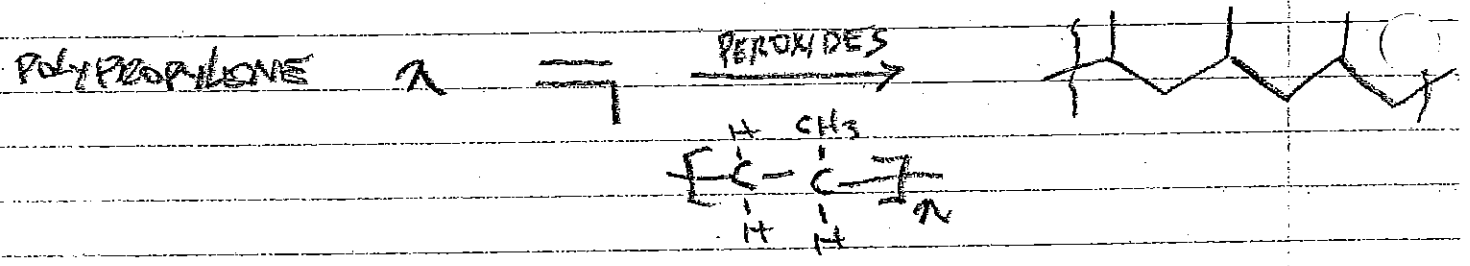 POLYPROPYLENE n PEROXIDES
H CH3
[-C-C-]n
H H